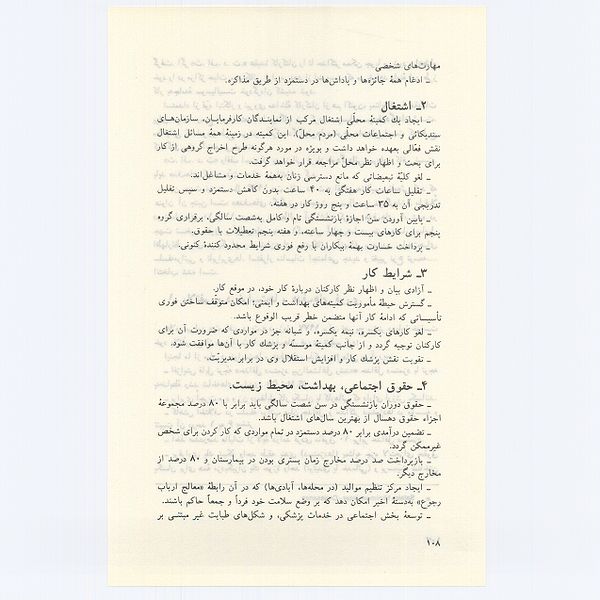 مهارت‌های شخصی
ـ ادغام همهٔ جائزه‌ها و پاداش‌ها در دستمزد از طریق مذاکره.
۲ـ اشتغال
ـ ایجاد یك کمیتهٔ محلّی اشتغال مرکب از نمایندگان کارفرمایان، سازمان‌های
سندیکائی و اجتماعات محلّی (مردم محل)، این کمیته در زمینهٔ همهٔ مسائل اشتغال
نقش فعّالی بعهده خواهد داشت و بویژه در مورد هرگونه طرح اخراج گروهی از کار
برای بحث و اظهار نظر محلّ مراجعه قرار خواهد گرفت.
ـ لغو کلیّهٔ تبعیضاتی که مانع دسترسی زنان به‌همهٔ خدمات و مشاغل‌اند.
ـ تقلیل ساعات کار هفتگی به ۴۰ ساعت بدون کاهش دستمزد و سپس تقلیل
تدریجی آن به ۳۵ ساعت و پنج روز کار در هفته.
ـ پایین آوردن سنّ اجازهٔ بازنشستگی تام و کامل به‌شصت سالگی، برقراری گروه
پنجم برای کارهای بیست و چهار ساعته، و هفته پنجم تعطیلات با حقوق.
ـ پرداخت خسارت بهمهٔ بیکاران با رفع فوری شرایط محدود کنندهٔ کنونی.
۳ـ شرایط کار
ـ آزادی بیان و اظهار نظر کارکنان دربارهٔ کار خود، در موقع کار.
ـ گسترش حیطهٔ مأموریّت کمیته‌های بهداشت و ایمنی؛ امکان متوقف ساختن فوری
تأسیساتی که ادامهٔ کار آنها متضمن خطر قریب الوقوع باشد.
ـ لغو کارهای یکسره، نیمه یکسره، و شبانه جز در مواردی که ضرورت آن برای
کارکنان توجیه گردد و از جانب کمیتهٔ موسسّه و پزشك کار با آن‌ها موافقت شود.
ـ تقویت نقش پزشك کار و افزایش استقلال وی در برابر مدیریّت.
۴ـ حقوق اجتماعی، بهداشت، محیط زیست.
ـ حقوق دوران بازنشستگی در سن شصت سالگی باید برابر با ۸۰ درصد مجموعهٔ
اجزاء حقوق دهسال از بهترین سال‌های اشتغال باشد.
ـ تضمین درآمدی برابر ۸۰ درصد دستمزد در تمام مواردی که کار کردن برای شخص
غیرممکن گردد.
ـ بازپرداخت صد درصد مخارج زمان بستری بودن در بیمارستان و ۸۰ درصد از
مخارج دیگر.
ـ ایجاد مرکز تنظیم موالید (در محله‌ها، آبادی‌ها) که در آن رابطهٔ «معالج ارباب
رجوع» به‌دستهٔ اخیر امکان دهد که بر وضع سلامت خود فرداً و جمعاً حاکم باشند.
ـ توسعهٔ بخش اجتماعی در خدمات پزشکی، و شکل‌های طبابت غیر مبتنی بر
۱۰۸